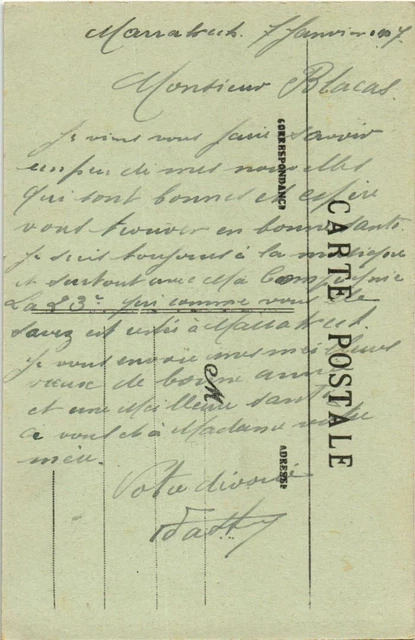 Marrakech. 7 Janvier
Monsieur Blacas.
Je viens vous faire savoir
un peu de mes nouvelles
qui sont bonnes et espère
vous trouver en bonne santé.
Je suis toujours à la musique
et surtout avec Ma Compagnie
La 23e qui comme vous le
savez est restée à Marrakech.
Je vous envoie mes meilleurs
vœux de bonne année
et une Meilleure santé
à vous et à Madame
Votre dévoué
CORRESPONDANCE
CARTE POSTALE
M
ADRESSE